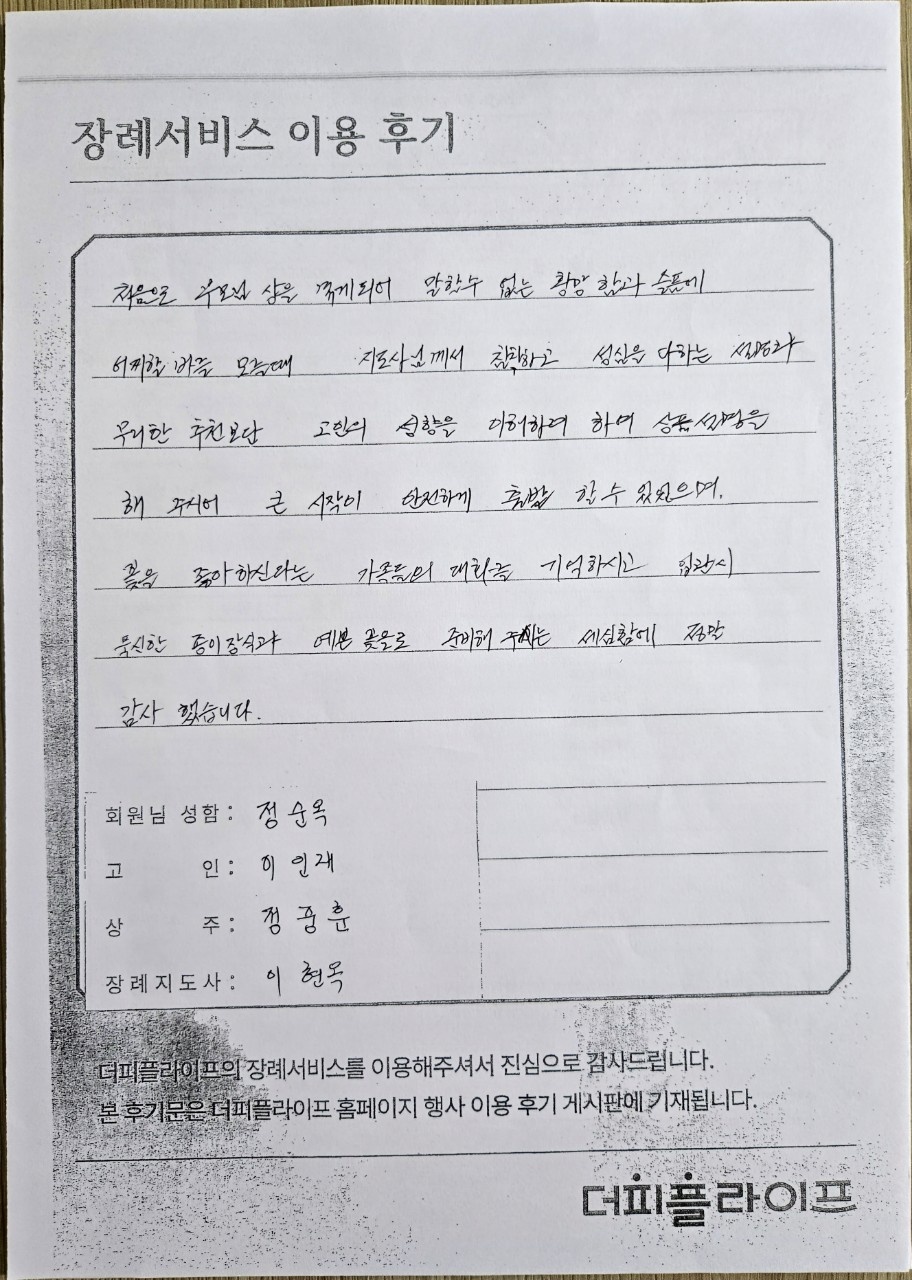 장례서비스 이용 후기
처음으로 부모님 상을 겪게되어 말할수 없는 황망함과 슬픔에
어찌할바를 모를때 지도사님께서 침착하고 성실을 다하는 설명과
무리한 추천보단 고인의 성향을 이해하려 하며 상품설명을
해 주시어 큰 시작이 안전하게 출발 할 수 있었으며.
꽃을 좋아하신다는 가족들의 대화를 기억하시고 입관시
풍신한 종이장식과 예쁜 꽃으로 준비해 주시는 세심함에 정말
감사 했습니다.
회원님 성함: 정순옥
고 인: 이인재
상 주: 정풍훈
장례지도사: 이현목
더피플라이프의 장례서비스를 이용해주셔서 진심으로 감사드립니다.
본 후기문은 더피플라이프 홈페이지 행사 이용 후기 게시판에 기재됩니다.
더피플라이프